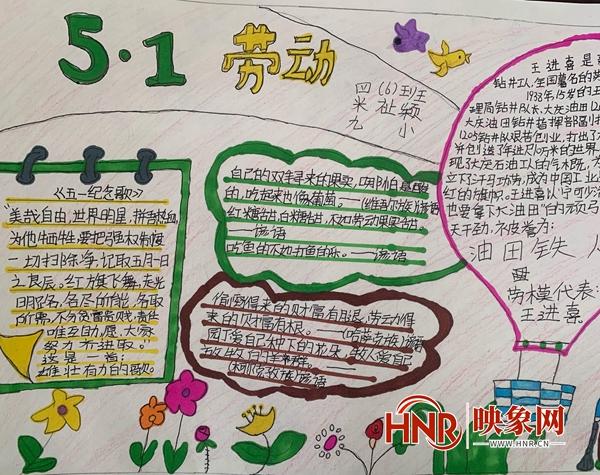 5·1 劳动
四(6)班
米祉颖
九小
《五一纪念歌》
美哉自由,世界明星,拼吾热血,
为他牺牲,要把强权制度
一切扫除净,记取五月一日
之良辰。红旗飞舞,走光
明路,各尽所能,各取
所需,不分贫富贵贱,责任
唯互助,愿大家
努力齐进取。
这是一首:
雄壮有力的歌。
自己的双手寻来的果实,哪怕是酸
的,吃起来也像葡萄。——(维吾尔族)谚语
红糖甜,白糖甜,不如劳动果实甜。
——谚语
吃鱼的不如打鱼自乐。——谚语
偷懒得来的财富有眼,劳动得
来的财富有根。——(哈萨克族)谚语
园丁爱自己种下的花木,
牧人爱自己
放牧的羊群。——
(柯尔克孜族)谚语
王进喜是
钻井工人,全国著名的劳
1938年15岁的王
理局钻井队长,大庆油田12
大庆油田钻井指挥部副指
1205钻井队艰苦创业,打出了
并创造了年进尺10万米的世界
现了大庆石油工人的气木既,为
立下汗马功劳,成为中国工业
红的旗帜。王进喜以"宁可少活
也要拿下大油田"的顽弓
天干劲,被誉为:
油田铁人
劳模代表:
王进喜
HNR 映象网
WWW.HNR.CN